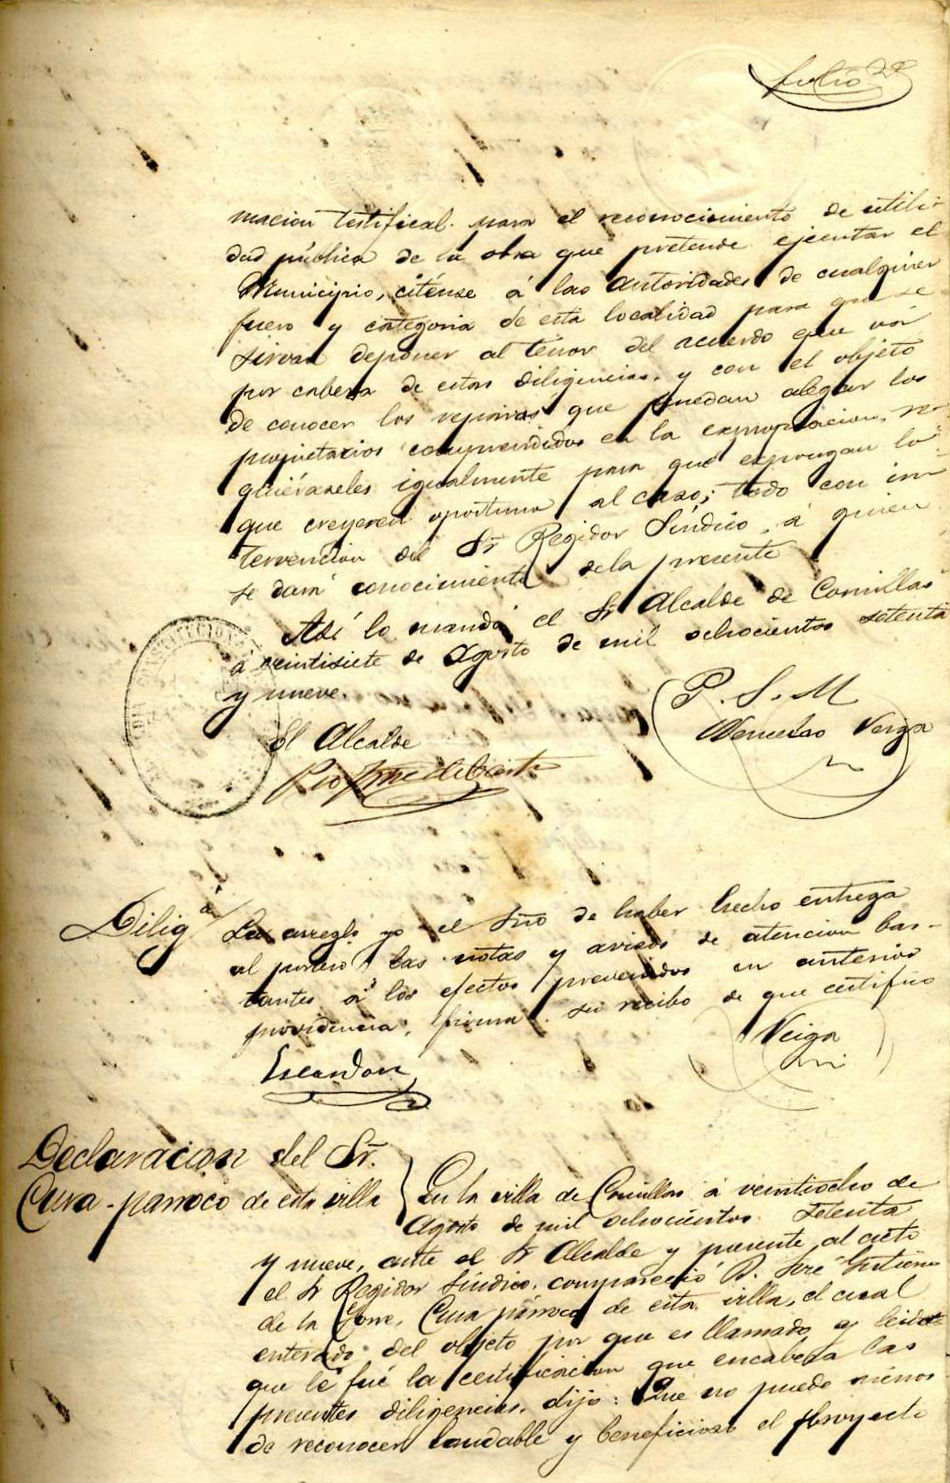 folio 2º
macion testifical para el reconocimiento de utili-
dad pública de la obra que pretende ejecutar el
Municipio, citénse á las autoridades de cualquier
fuero y categoria de esta localidad para que se
sirvan deponer al tenor del acuerdo que vá
por cabeza de estas diligencias, y con el objeto
de conocer los reparos que puedan alegar los
propietarios comprendidos en la expropiacion, re-
quiéraseles igualmente para que expongan lo
que creyeren oportuno al caso; todo con in-
tervencion del Sr Regidor Síndico, á quien
se dará conocimiento de la presente
Así lo mandó el Sr Alcalde de Comillas
á veintisiete de Agosto de mil ochocientos setenta
y nueve.
P. S. M
El Alcalde
Wenceslao Veiga
Diliga
yo el Srio de haber hecho entrega
al portero las notas y avisos de atencion bas-
tantes á los efectos prevenidos en anterior
providencia, firma su recibo de que certifico
Veiga
Escandon
Declaracion del Sr.
Cura-parroco de esta villa
En la villa de Comillas á veintiocho de
Agosto de mil ochocientos setenta
y nueve, ante el Sr Alcalde y presente al acto
el Sr Regidor Síndico, compareció D. José Gutierrez
de la Torre, Cura párroco de esta villa, el cual
enterado del objeto por que es llamado y leida
que le fué la certificacion que encabeza las
presentes diligencias, dijo: Que no puede menos
de reconocer laudable y beneficioso el proyecto